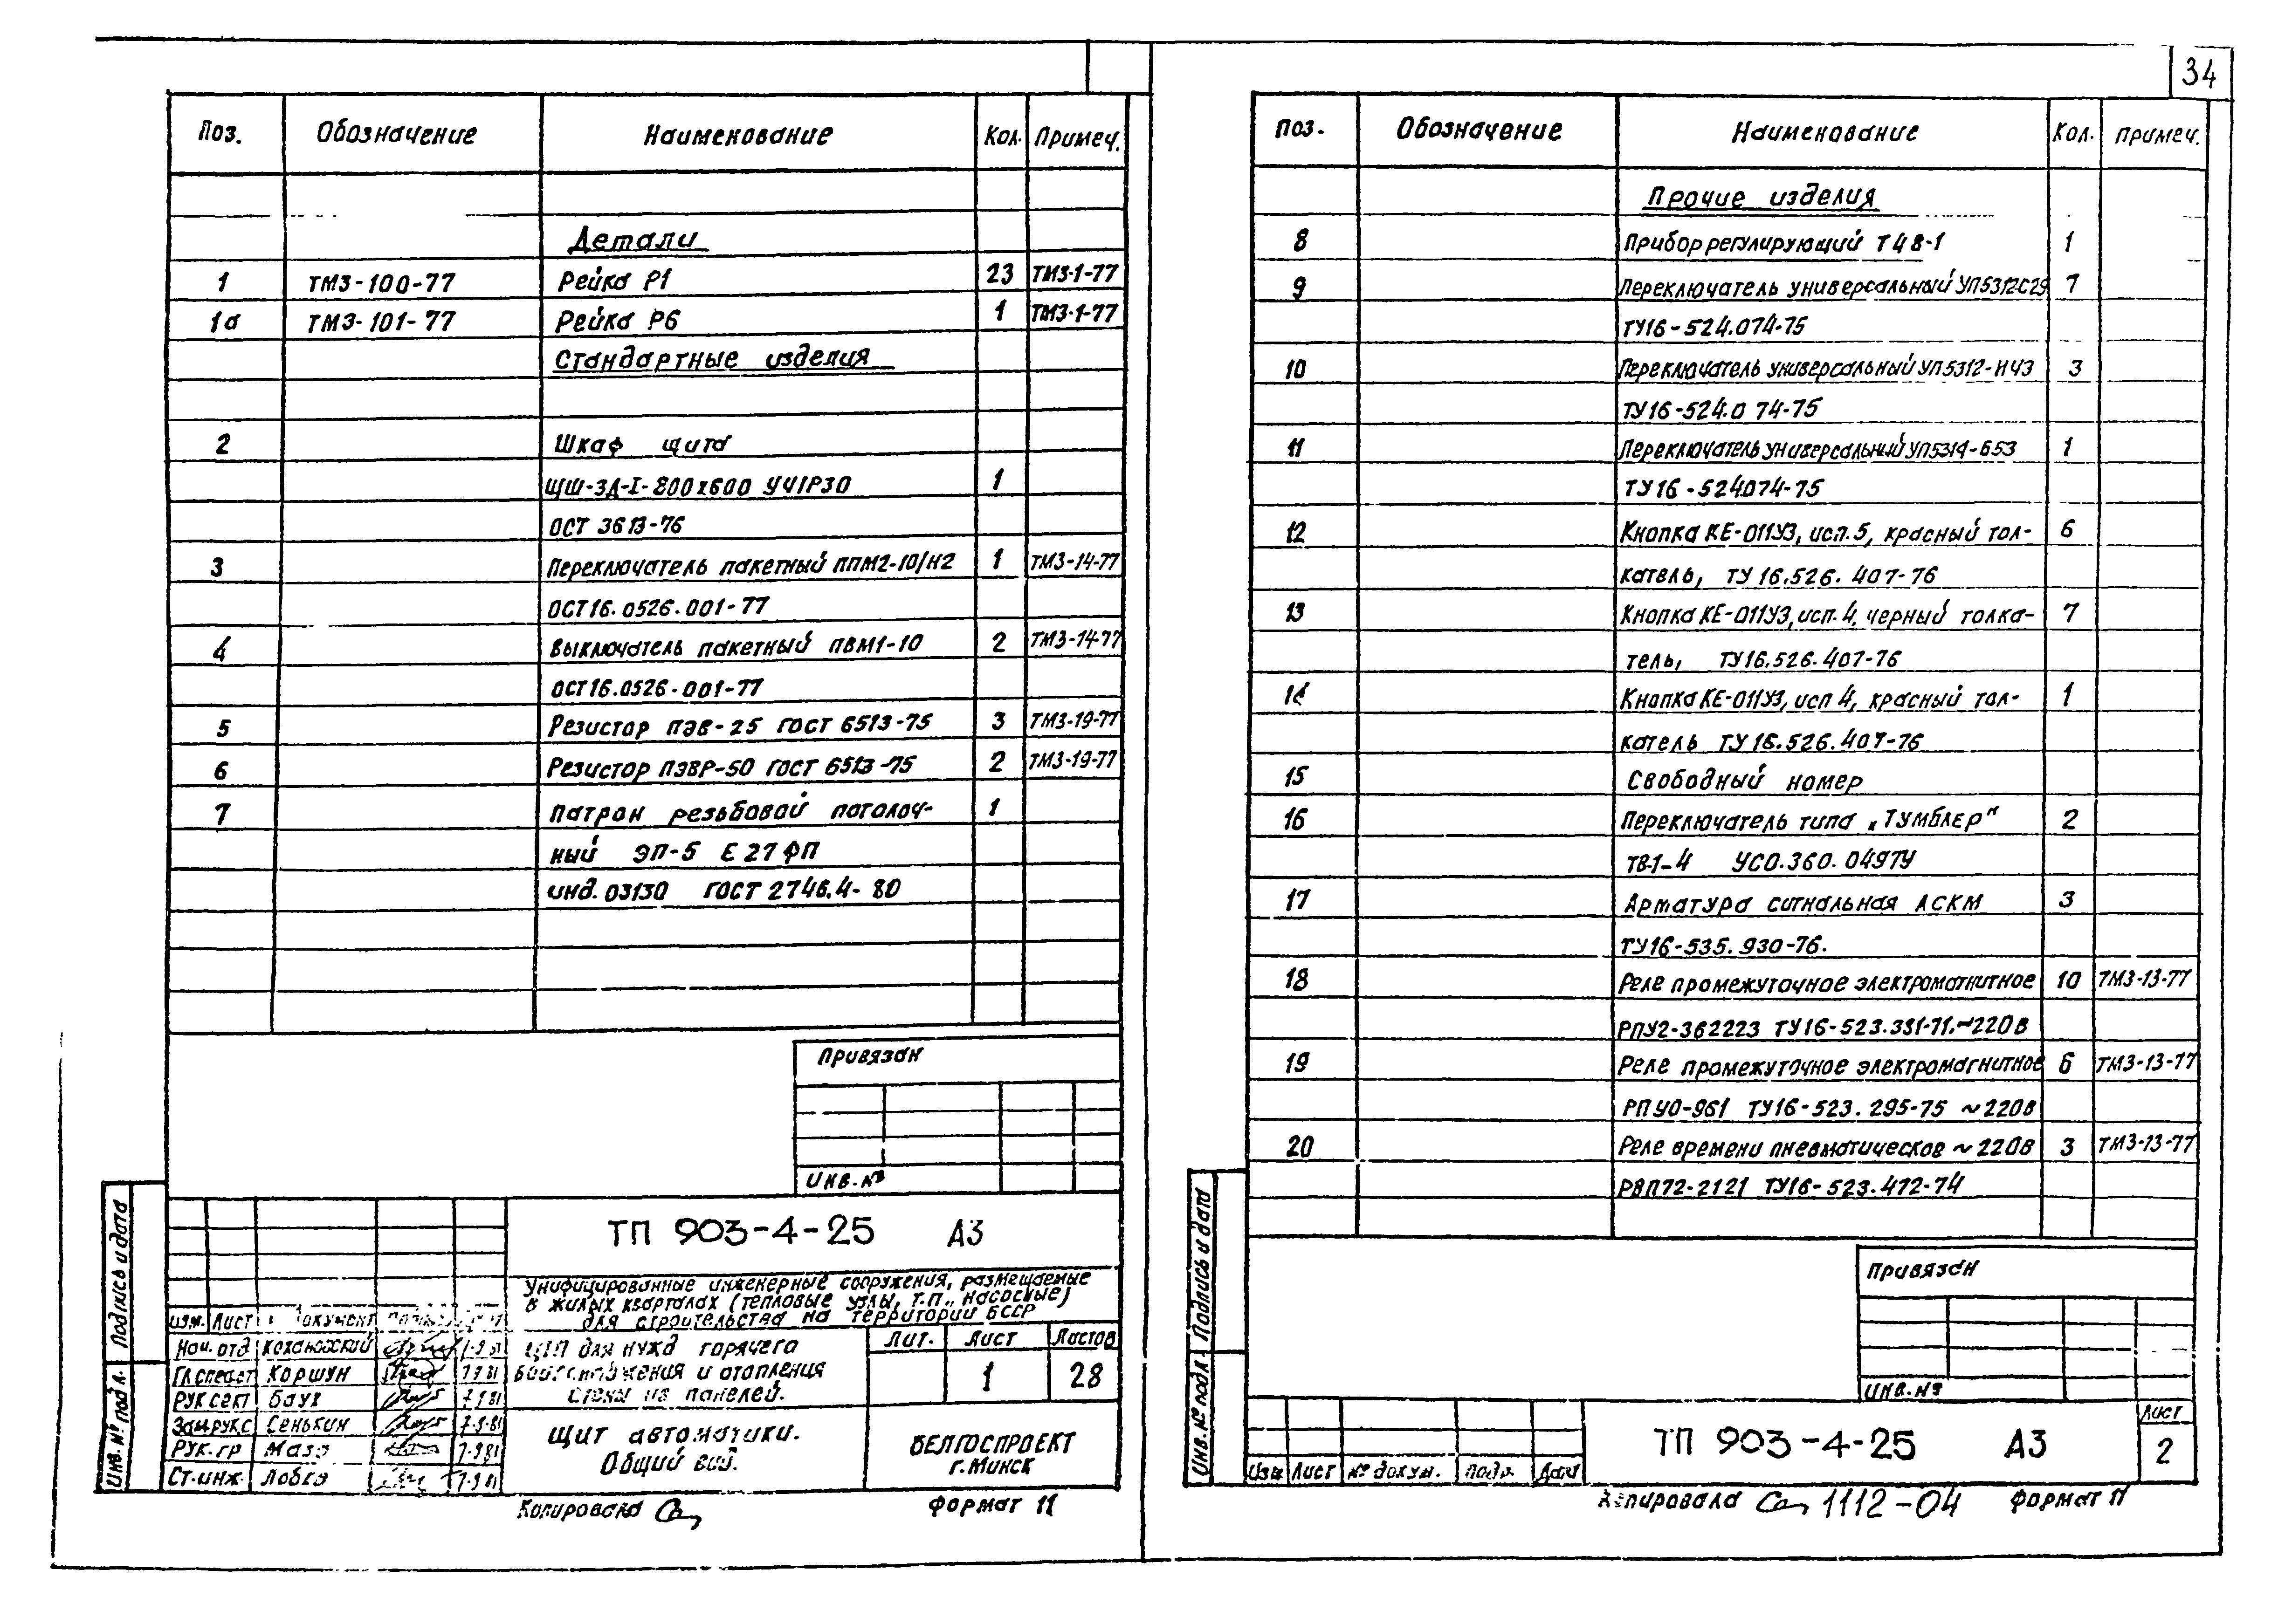 34
Поз. Обозначение Наименование Кол. Примеч.
Детали
1 ТМ3-100-77 Рейка Р1 23 ТМ3-1-77
1а ТМ3-101-77 Рейка Р6 1 ТМ3-1-77
Стандартные изделия
2 Шкаф щита
ЩШ-ЗД-I-800х600 УЧIР30 1
ОСТ 3613-76
3 Переключатель пакетный ППМ2-10/Н2 1 ТМ3-14-77
ОСТ16.0526.001-77
4 Выключатель пакетный ПВМ1-10 2 ТМ3-14-77
ОСТ16.0526.001-77
5 Резистор ПЭВ-25 ГОСТ 6513-75 3 ТМ3-19-77
6 Резистор ПЭВР-50 ГОСТ 6513-75 2 ТМ3-19-77
7 Патрон резьбовой потолоч- 1
ный ЭП-5 Е27ФП
инд.03130 ГОСТ 2746.4-80
Привязан
Инв.№
ТП 903-4-25 А3
Унифицированные инженерные сооружения, размещаемые
в жилых кварталах (тепловые узлы, т.п., насосные)
для строительства на территории БССР
Изм. Лист
Нач.отд Кохановский 7.9.81
Гл.специст Коршун 7.9.81
Рук сект Баук 7.9.81
Зам.рук.с Сенькин 7.9.81
Рук.гр Мазо 7.9.81
Ст.инж. Лобко 7.9.81
ЦТП для нужд горячего
и отопления
панелей.
Лит. Лист Листов
1 28
Щит автоматики.
Общий вид.
БЕЛГОСПРОЕКТ
г.Минск
Подпись и дата
Инв.№ подл.
Копировала Формат 11
Поз. Обозначение Наименование Кол. Примеч.
Прочие изделия
8 Прибор регулирующий Т48-1 1
9 Переключатель универсальный УП5312С29 7
ТУ16-524.074-75
10 Переключатель универсальный УП5312-НЧ3 3
ТУ16-524.074-75
11 Переключатель универсальный УП5314-Б53 1
ТУ16-524074-75
12 Кнопка КЕ-011У3, исп.5, красный тол- 6
катель, ТУ 16.526.407-76
13 Кнопка КЕ-011У3, исп.4, черный толка- 7
тель, ТУ16.526.407-76
14 Кнопка КЕ-011У3, исп 4, красный тол- 1
катель ТУ16.526.407-76
15 Свободный номер
16 Переключатель типа „Тумблер" 2
ТВ1-4 УС0.360.049ТУ
17 Арматура сигнальная АСКМ 3
ТУ16-535.930-76.
18 Реле промежуточное электромагнитное 10 ТМ3-13-77
РПУ2-362223 ТУ16-523.331-71.~220В
19 Реле промежуточное электромагнитное 6 ТМ3-13-77
РПУ0-961 ТУ16-523.295-75 ~220В
20 Реле времени пневматическое ~220В 3 ТМ3-13-77
РВП72-2121 ТУ16-523.472-74
Привязан
Инв.№
ТП 903-4-25 А3
Лист
2
Изм Лист № докум. Подп. Дата
Подпись и дата
Инв.№ подл.
Копировала 1112-04 Формат 11